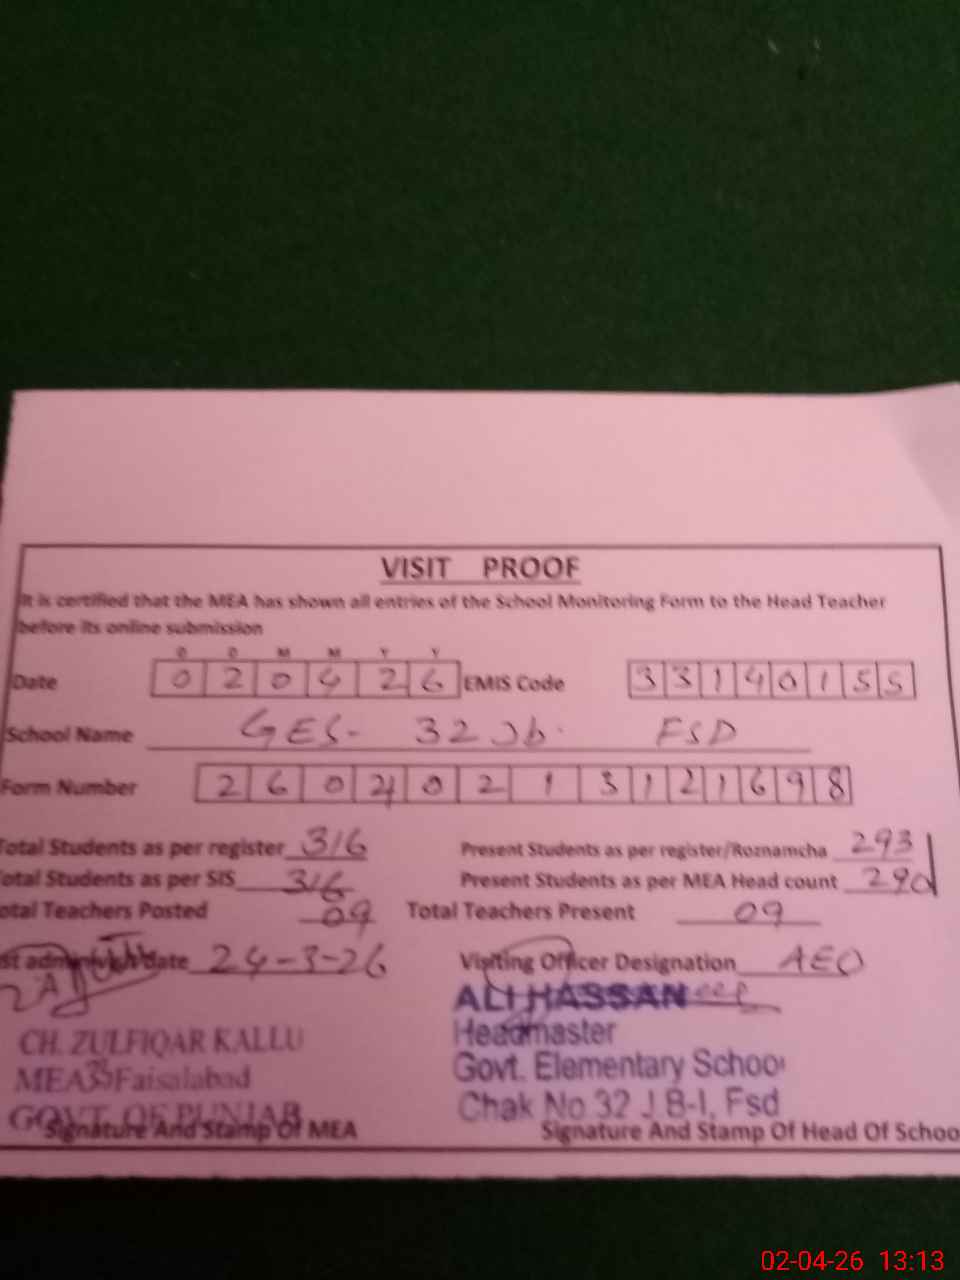 VISIT PROOF
It is certified that the MEA has shown all entries of the School Monitoring Form to the Head Teacher
before its online submission
D D M M Y Y
Date 0 2 0 4 2 6 EMIS Code 3 3 1 4 0 1 5 5
School Name GES- 32 Jb. FSD
Form Number 2 6 0 4 0 2 1 3 1 2 1 6 9 8
Total Students as per register 316 Present Students as per register/Roznamcha 293
Total Students as per SIS 316 Present Students as per MEA Head count 290
Total Teachers Posted 09 Total Teachers Present 09
st admission date 24-3-26 Visiting Officer Designation AEO
ALI HASSAN
Headmaster
CH. ZULFIQAR KALLU
Govt. Elementary School
MEA 35 Faisalabad
Chak No 32 J.B-I, Fsd
GOVT. OF PUNJAB
Signature And Stamp Of MEA Signature And Stamp Of Head Of Schoo
02-04-26 13:13